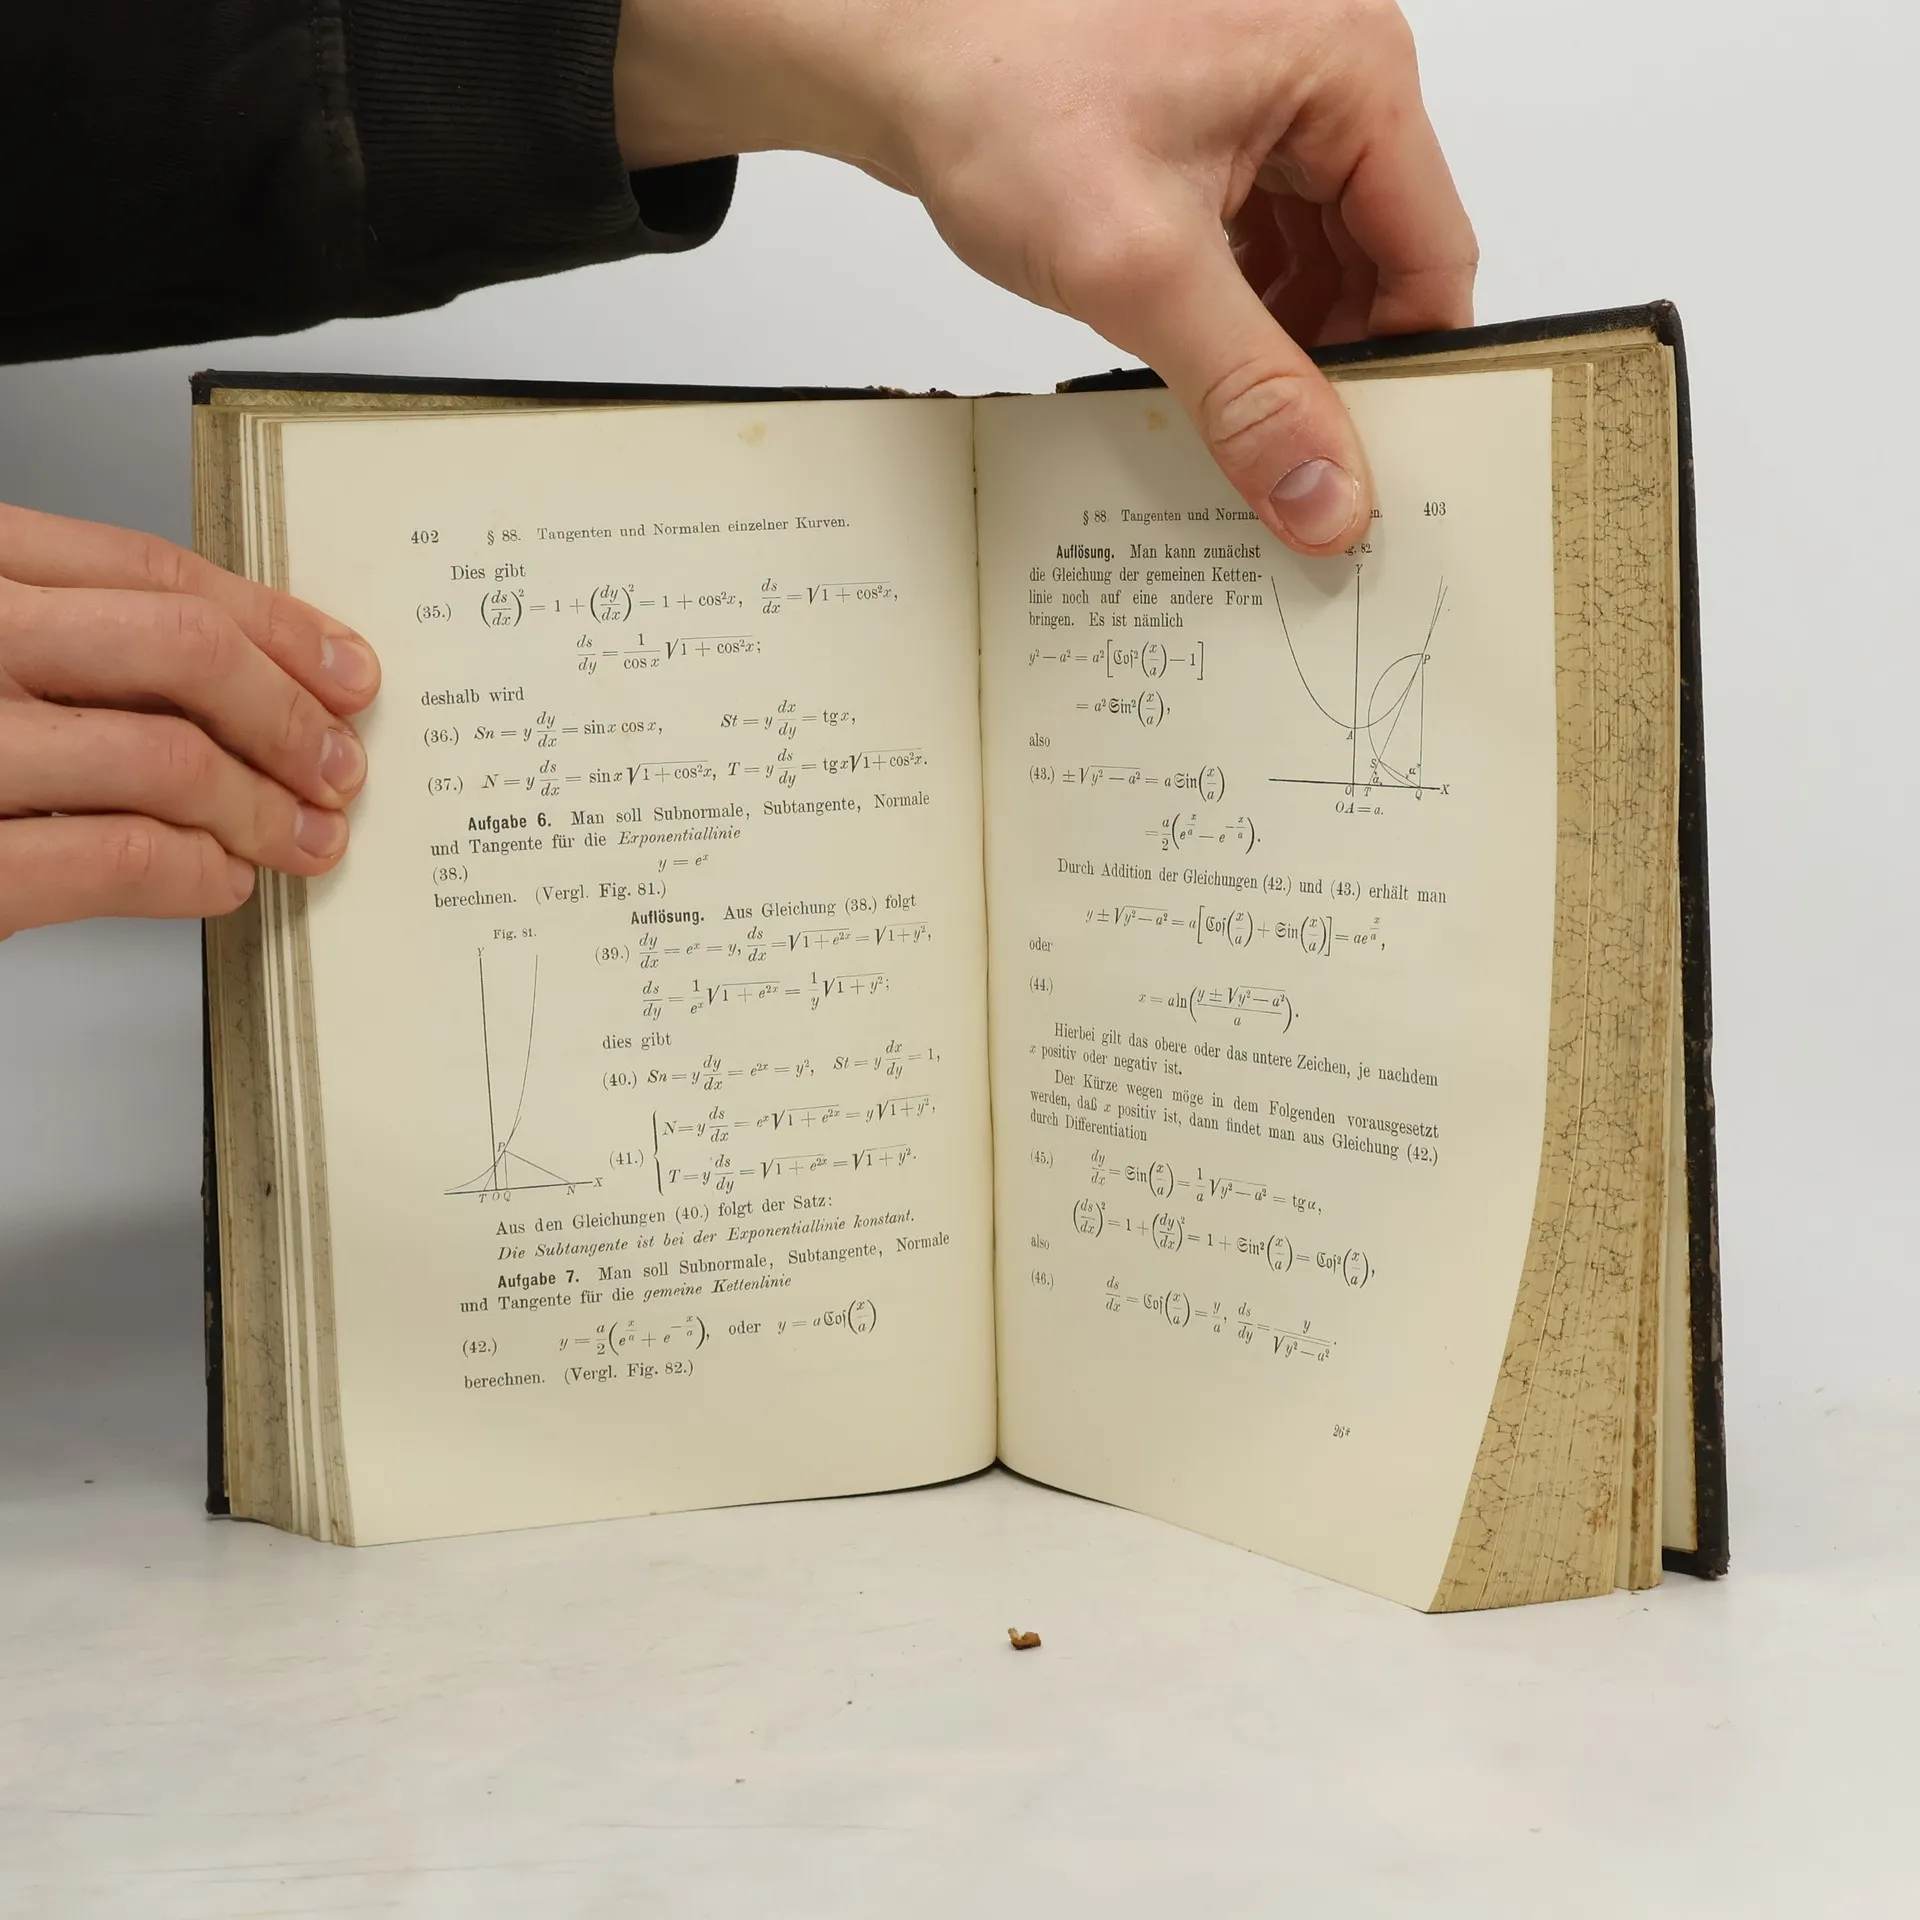 402 § 88. Tangenten und Normalen einzelner Kurven.
Dies gibt
(35.) (ds/dx)² = 1 + (dy/dx)² = 1 + cos²x, ds/dx = √(1 + cos²x),
ds/dy = 1/cos x √(1 + cos²x);
deshalb wird
(36.) Sn = y dy/dx = sin x cos x, St = y dx/dy = tg x,
(37.) N = y ds/dx = sin x √(1 + cos²x), T = y ds/dy = tg x √(1 + cos²x).
Aufgabe 6. Man soll Subnormale, Subtangente, Normale
und Tangente für die Exponentiallinie
(38.) y = eˣ
berechnen. (Vergl. Fig. 81.)
Fig. 81.
Y
P
T O Q N X
Auflösung. Aus Gleichung (38.) folgt
(39.) dy/dx = eˣ = y, ds/dx = √(1 + e²ˣ) = √(1 + y²),
ds/dy = 1/eˣ √(1 + e²ˣ) = 1/y √(1 + y²);
dies gibt
(40.) Sn = y dy/dx = e²ˣ = y², St = y dx/dy = 1,
(41.) { N = y ds/dx = eˣ √(1 + e²ˣ) = y √(1 + y²),
T = y ds/dy = √(1 + e²ˣ) = √(1 + y²).
Aus den Gleichungen (40.) folgt der Satz:
Die Subtangente ist bei der Exponentiallinie konstant.
Aufgabe 7. Man soll Subnormale, Subtangente, Normale
und Tangente für die gemeine Kettenlinie
(42.) y = a/2 (e^(x/a) + e^(−x/a)), oder y = a Coſ(x/a)
berechnen. (Vergl. Fig. 82.)
§ 88. Tangenten und 403
Auflösung. Man kann zunächst
die Gleichung der gemeinen Ketten-
linie noch auf eine andere Form
bringen. Es ist nämlich
y² — a² = a² [Coſ²(x/a) — 1]
= a² Sin²(x/a),
also
(43.) ± √(y² — a²) = a Sin(x/a)
= a/2 (e^(x/a) — e^(−x/a)).
82
Y
P
A
S
α α
O T Q X
OA = a.
Durch Addition der Gleichungen (42.) und (43.) erhält man
y ± √(y² — a²) = a [Coſ(x/a) + Sin(x/a)] = ae^(x/a),
oder
(44.) x = a ln((y ± √(y² — a²))/a).
Hierbei gilt das obere oder das untere Zeichen, je nachdem
x positiv oder negativ ist.
Der Kürze wegen möge in dem Folgenden vorausgesetzt
werden, daß x positiv ist, dann findet man aus Gleichung (42.)
durch Differentiation
(45.) dy/dx = Sin(x/a) = 1/a √(y² — a²) = tg α,
(ds/dx)² = 1 + (dy/dx)² = 1 + Sin²(x/a) = Coſ²(x/a),
also
(46.) ds/dx = Coſ(x/a) = y/a, ds/dy = y/√(y² — a²).
26*